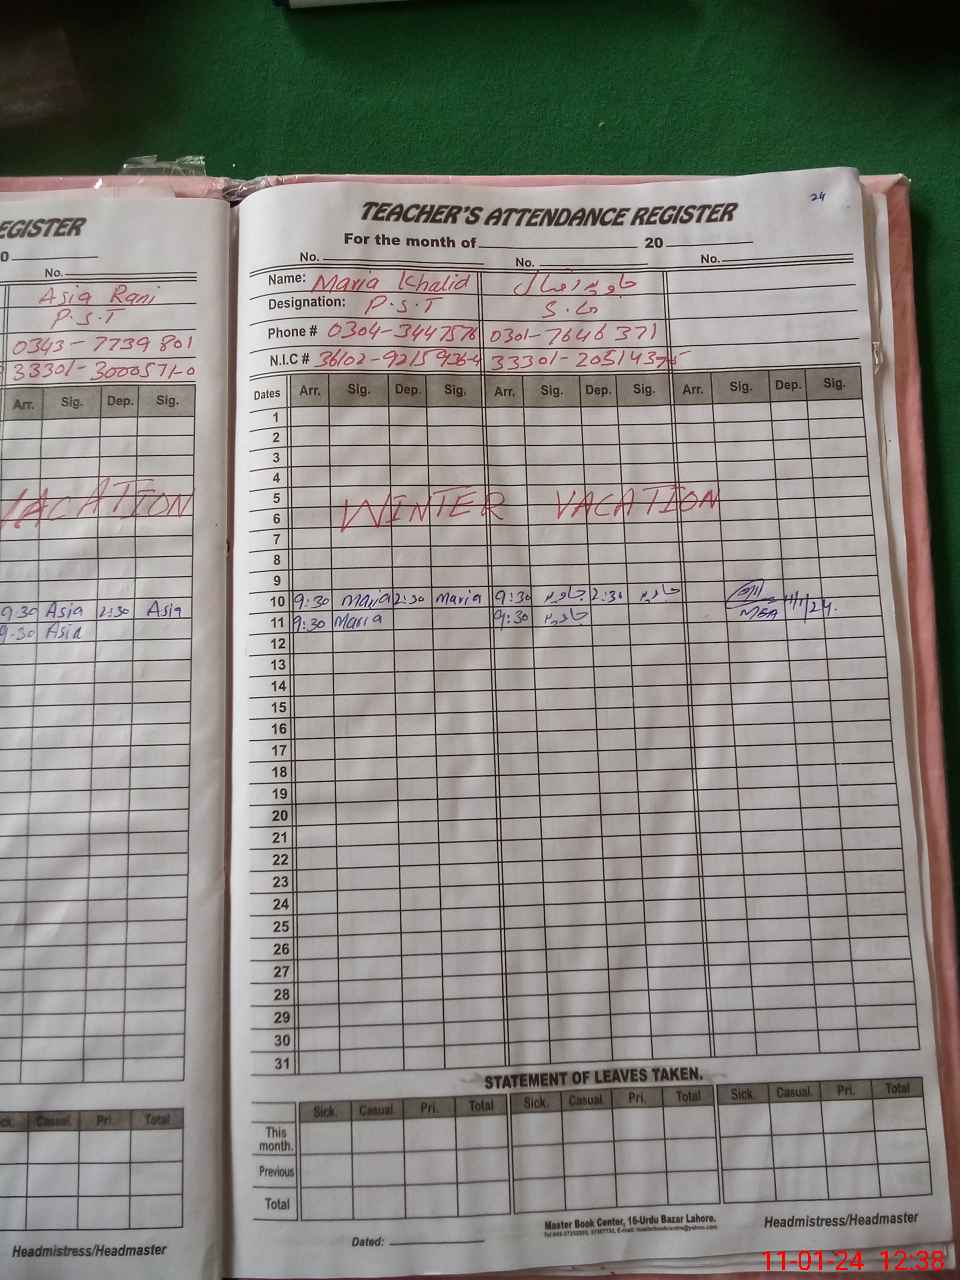 EGISTER
0
No.
Asia Rani
P.S.T
0343-7739801
33301-3000571-0
Arr. Sig. Dep. Sig.
VACATION
9:30 Asia 2:30 Asia
9:30 Asia
Casual Pri. Total
Headmistress/Headmaster
24
TEACHER'S ATTENDANCE REGISTER
For the month of 20
No. No. No.
Name: Maria Khalid جاوید اقبال
Designation: P.S.T
Phone # 0304-3447576 0301-7646371
N.I.C # 36102-9215936-4 33301-2051437-5
Dates Arr. Sig. Dep. Sig. Arr. Sig. Dep. Sig. Arr. Sig. Dep. Sig.
1
2
3
4
5
WINTER VACATION
6
7
8
9
10 9:30 Maria 2:30 Maria 9:30 جاوید 2:30 جاوید
11 9:30 Maria 9:30 جاوید MEA 11/1/24.
12
13
14
15
16
17
18
19
20
21
22
23
24
25
26
27
28
29
30
31
STATEMENT OF LEAVES TAKEN.
Sick. Casual Pri. Total Sick. Casual Pri. Total Sick. Casual. Pri. Total
This month.
Previous
Total
Master Book Center, 16-Urdu Bazar Lahore.
Dated:
Headmistress/Headmaster
11-01-24 12:38